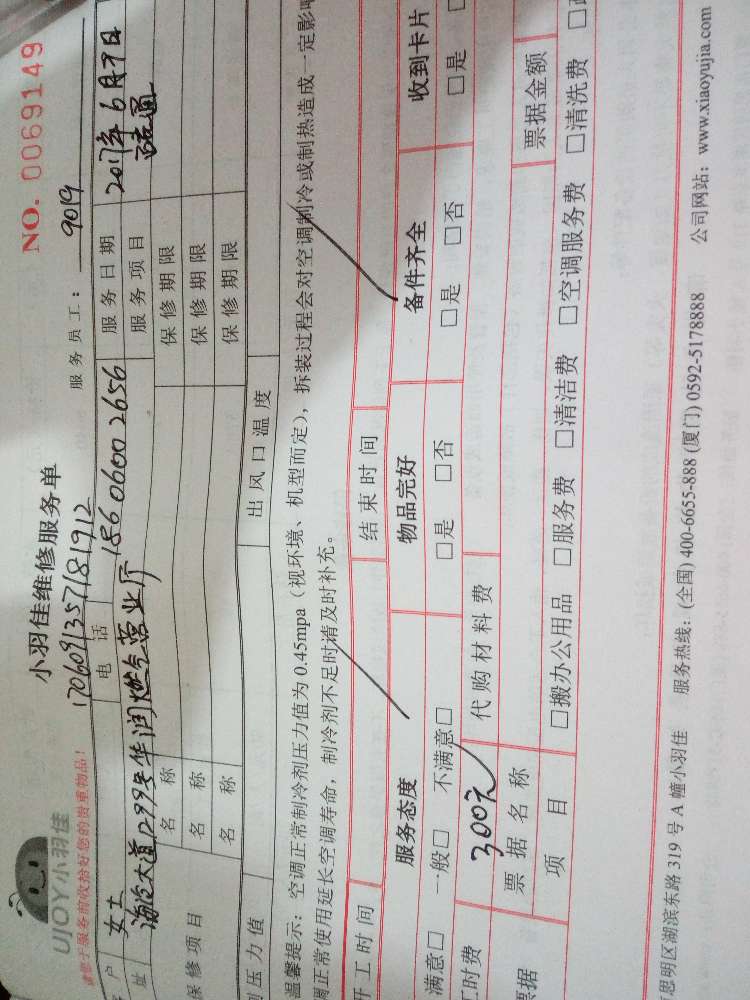 UJOY小羽佳
小羽佳维修服务单
NO. 0069149
请您于服务前收拾好您的贵重物品!
1706091357181912
服务员工: 9019
户 女士 电话 18606002656 服务日期 2017年6月9日
址 海沧大道1299号华润燃气营业厅 服务项目
保修项目 名称 保修期限
名称 保修期限
名称 保修期限
压力值 出风口温度
温馨提示: 空调正常制冷剂压力值为 0.45mpa (视环境、机型而定), 拆装过程会对空调制冷或制热造成一定影响
调正常使用延长空调寿命, 制冷剂不足时请及时补充。
开工时间 结束时间
服务态度 物品完好 备件齐全 收到卡片
满意□ 一般□ 不满意□ □是 □否 □是 □否 □是
工时费 300元 代购材料费
票据 票据名称 票据金额
项目 □搬办公用品 □服务费 □清洁费 □空调服务费 □清洗费
思明区湖滨东路 319 号 A 幢小羽佳 服务热线: (全国) 400-6655-888 (厦门) 0592-5178888 公司网站: www.xiaoyujia.com